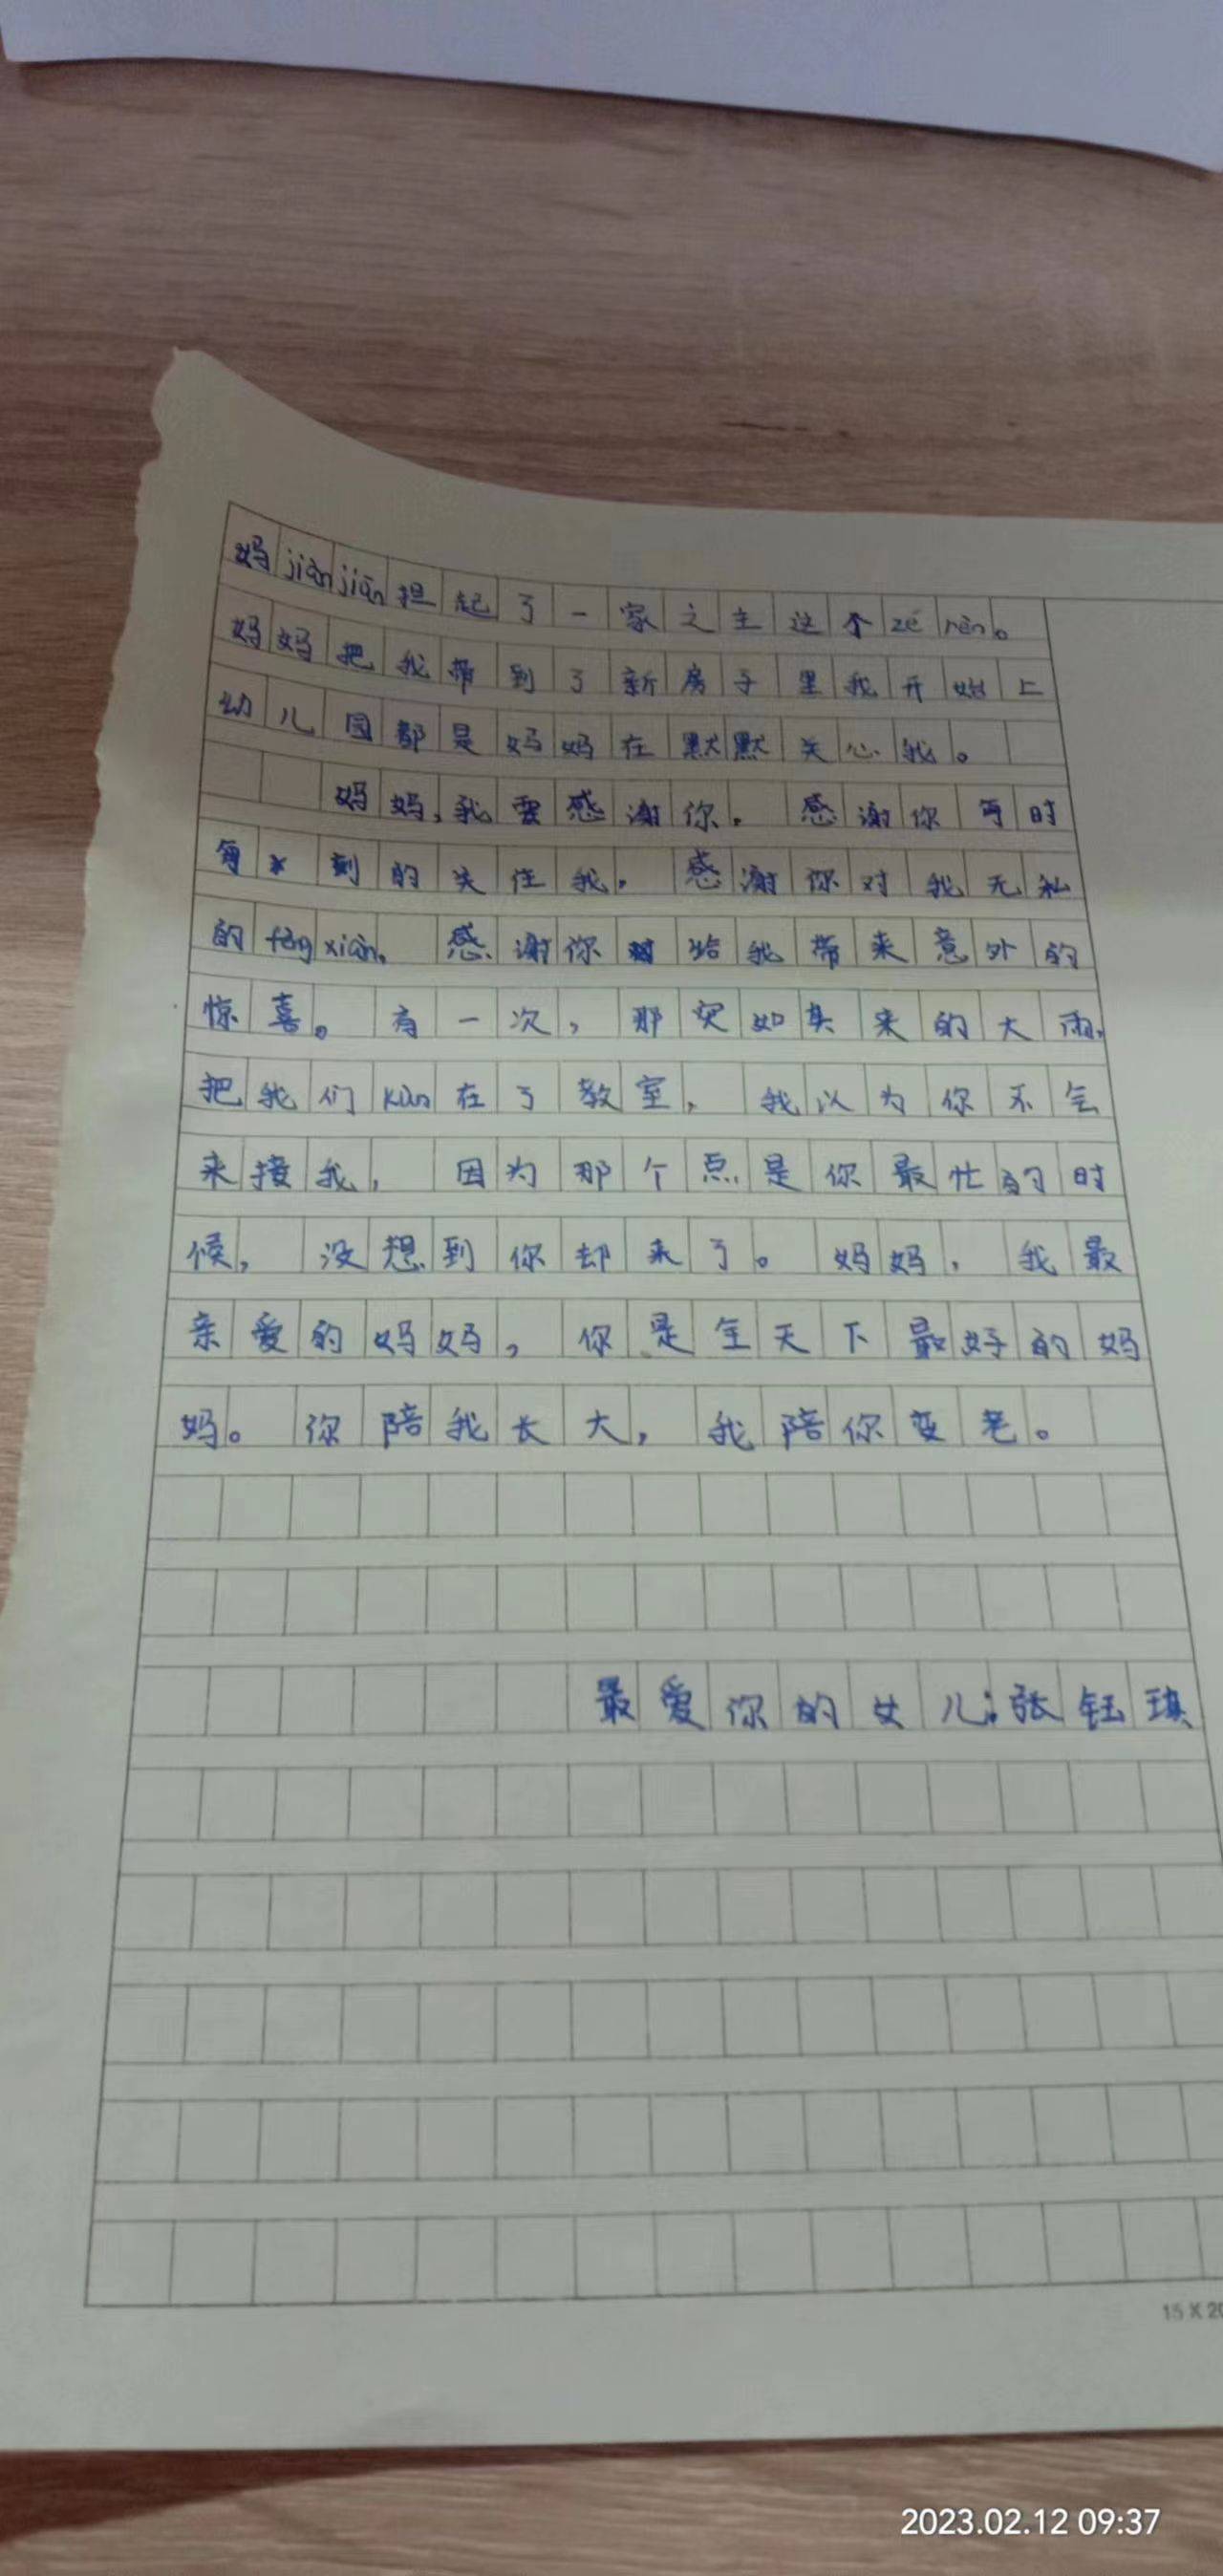 妈jiànjiān担起了一家之主这个zé rèn。
妈妈把我带到了新房子里我开始上
幼儿园都是妈妈在默默关心我。
妈妈,我要感谢你。感谢你每时
每刻的关住我。感谢你对我无私
的fèng xiàn。感谢你给我带来意外的
惊喜。有一次,那突如其来的大雨,
把我们kùn在了教室,我以为你不会
来接我,因为那个点是你最忙的时
候,没想到你却来了。妈妈,我最
亲爱的妈妈,你是全天下最好的妈
妈。你陪我长大,我陪你变老。
最爱你的女儿:张钰琪
15X20
2023.02.12 09:37